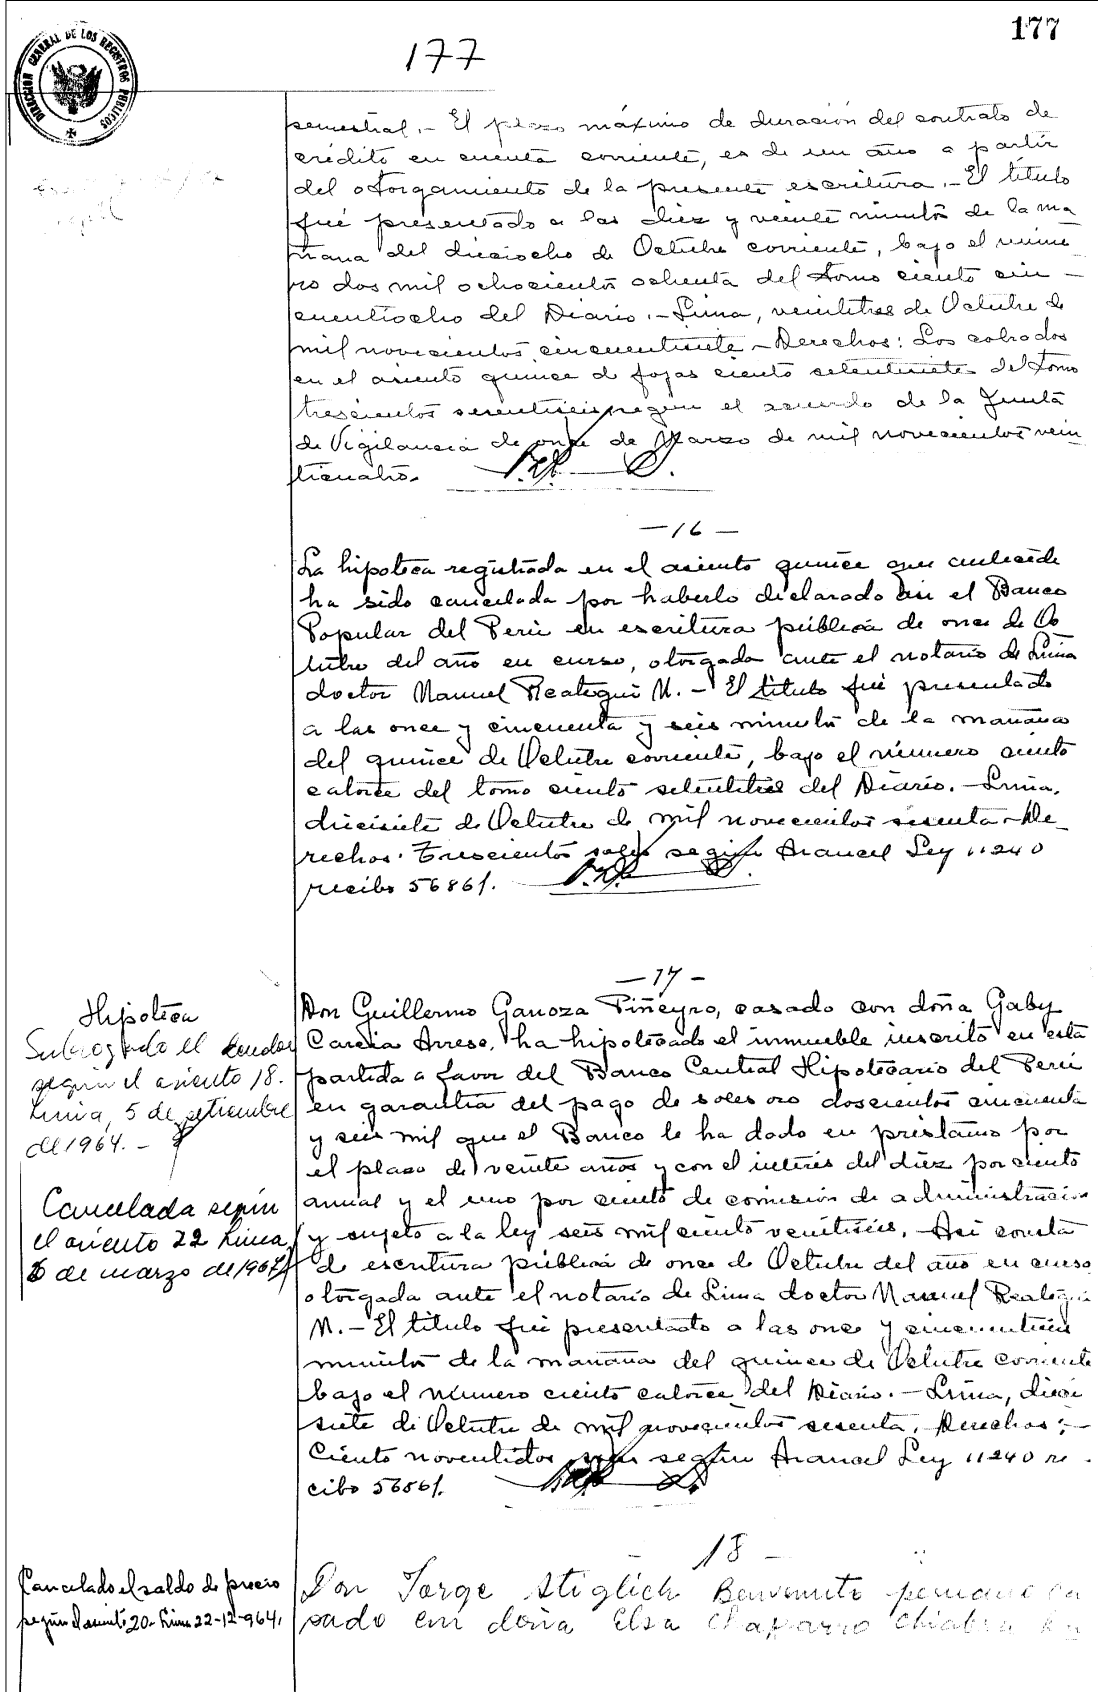 177
177
DIRECCION GENERAL DE LOS REGISTROS PUBLICOS
semestral.- El plazo máximo de duración del contrato de
crédito en cuenta corriente, es de un año a partir
del otorgamiento de la presente escritura.- El título
fué presentado a las diez y veinte minutos de la ma
ñana del dieciocho de Octubre corriente, bajo el núme
ro dos mil ochocientos ochenta del tomo ciento cin-
cuentiocho del Diario.- Lima, veintitres de Octubre de
mil novecientos cincuentisiete - Derechos: Los cobrados
en el asiento quince de fojas ciento setentisiete del tomo
trescientos sesentiseis según el acuerdo de la Junta
de Vigilancia de once de Marzo de mil novecientos vein
ticuatro.
- 16 -
La hipoteca registrada en el asiento quince que antecede
ha sido cancelada por haberlo declarado así el Banco
Popular del Perú en escritura pública de once de Oc
tubre del año en curso, otorgada ante el notario de Lima
doctor Manuel Reategui M. - El título fué presentado
a las once y cincuenta y seis minutos de la mañana
del quince de Octubre corriente, bajo el número ciento
catorce del tomo ciento setentitres del Diario. - Lima,
diecisiete de Octubre de mil novecientos sesenta - De_
rechos. Trescientos soles según Arancel Ley 11240
recibo 56861.
- 17 -
Hipoteca
Subrogado el deudor
según el asiento 18.
Lima, 5 de setiembre
de 1964. -
Cancelada según
el asiento 22 Lima
6 de marzo de 1967
Don Guillermo Ganoza Piñeyro, casado con doña Gaby
Garcia Arrese, ha hipotecado el inmueble inscrito en esta
partida a favor del Banco Central Hipotecario del Perú
en garantía del pago de soles oro doscientos cincuenta
y seis mil que el Banco le ha dado en préstamo por
el plazo de veinte años y con el interés del diez por ciento
anual y el uno por ciento de comisión de administración
y sujeto a la ley seis mil ciento veintiseis. Así consta
de escritura pública de once de Octubre del año en curso
otorgada ante el notario de Lima doctor Manuel Reategui
M. - El título fué presentado a las once y cincuentiseis
minutos de la mañana del quince de Octubre corriente
bajo el número ciento catorce del Diario. - Lima, dieci
siete de Octubre de mil novecientos sesenta. Derechos: -
Ciento noventidos soles según Arancel Ley 11240 re
cibo 56861.
18 -
Cancelado el saldo de precio
según el asiento 20 - Lima 22-12-964.
Don Jorge Stiglich Benvenuto peruano ca
sado con doña Elsa Chaparro Chiabra